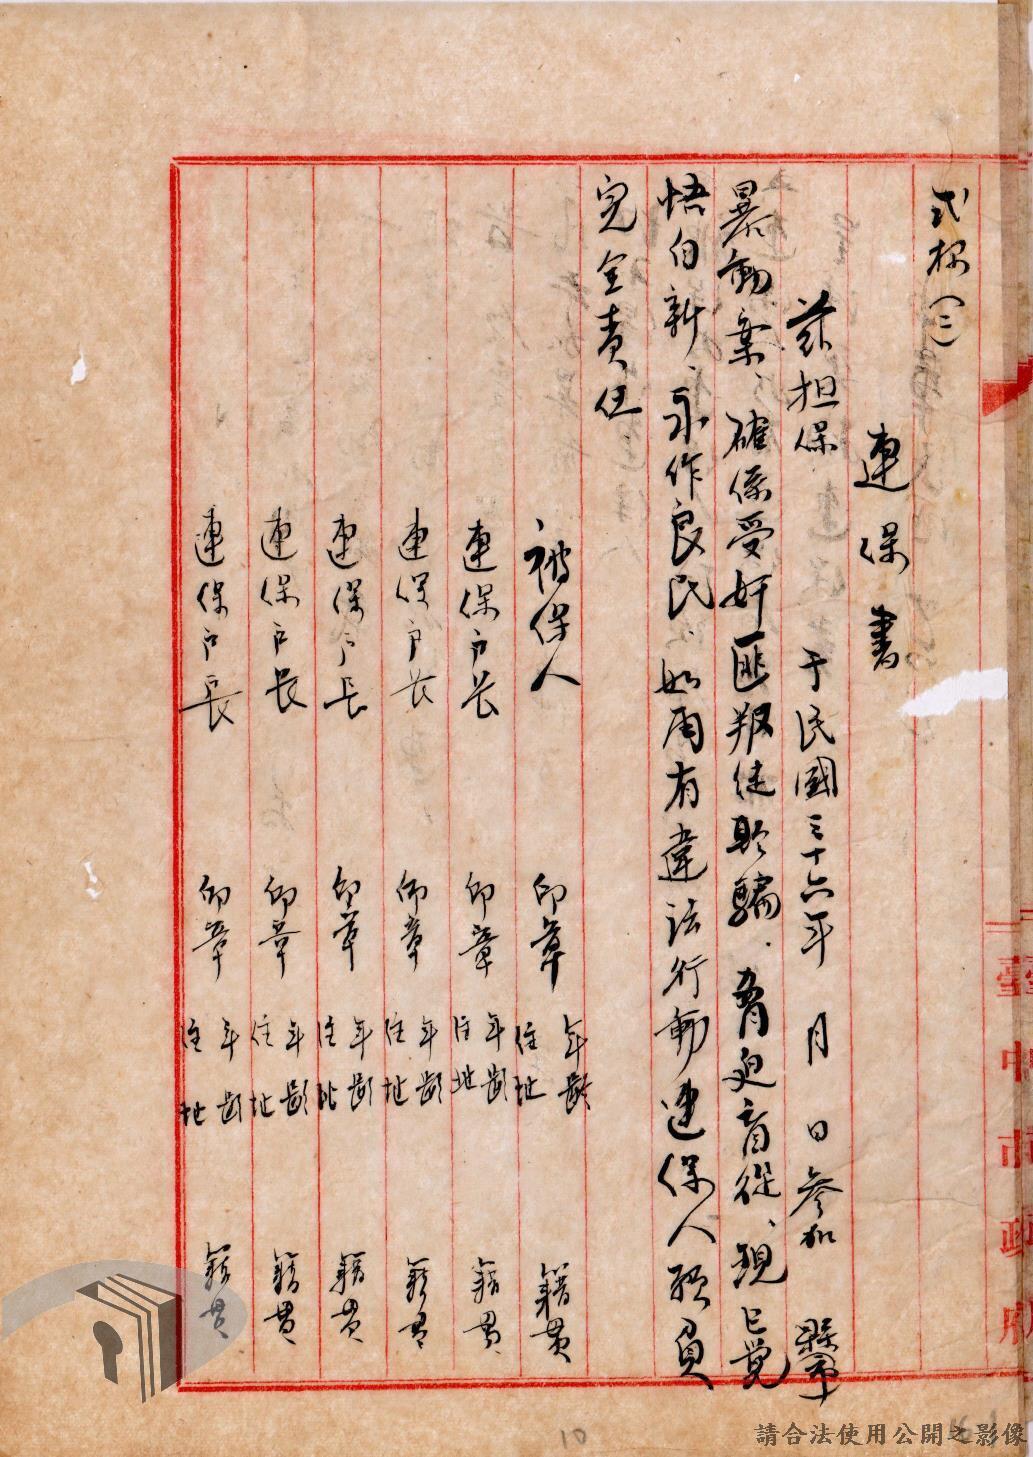 式樣(三)
連保書
茲担保　　于民國三十六年　月　日參加　縣市
暴動案、確係受奸匪叛徒欺騙、脅迫盲從、現已覺
悟自新、永作良民、如再有違法行動連保人願負
完全責任
被保人　印章　年齡　住址　籍貫
連保戶長　印章　年齡　住址　籍貫
連保戶長　印章　年齡　住址　籍貫
連保戶長　印章　年齡　住址　籍貫
連保戶長　印章　年齡　住址　籍貫
連保戶長　印章　年齡　住址　籍貫
臺中市政府
10
請合法使用公開之影像